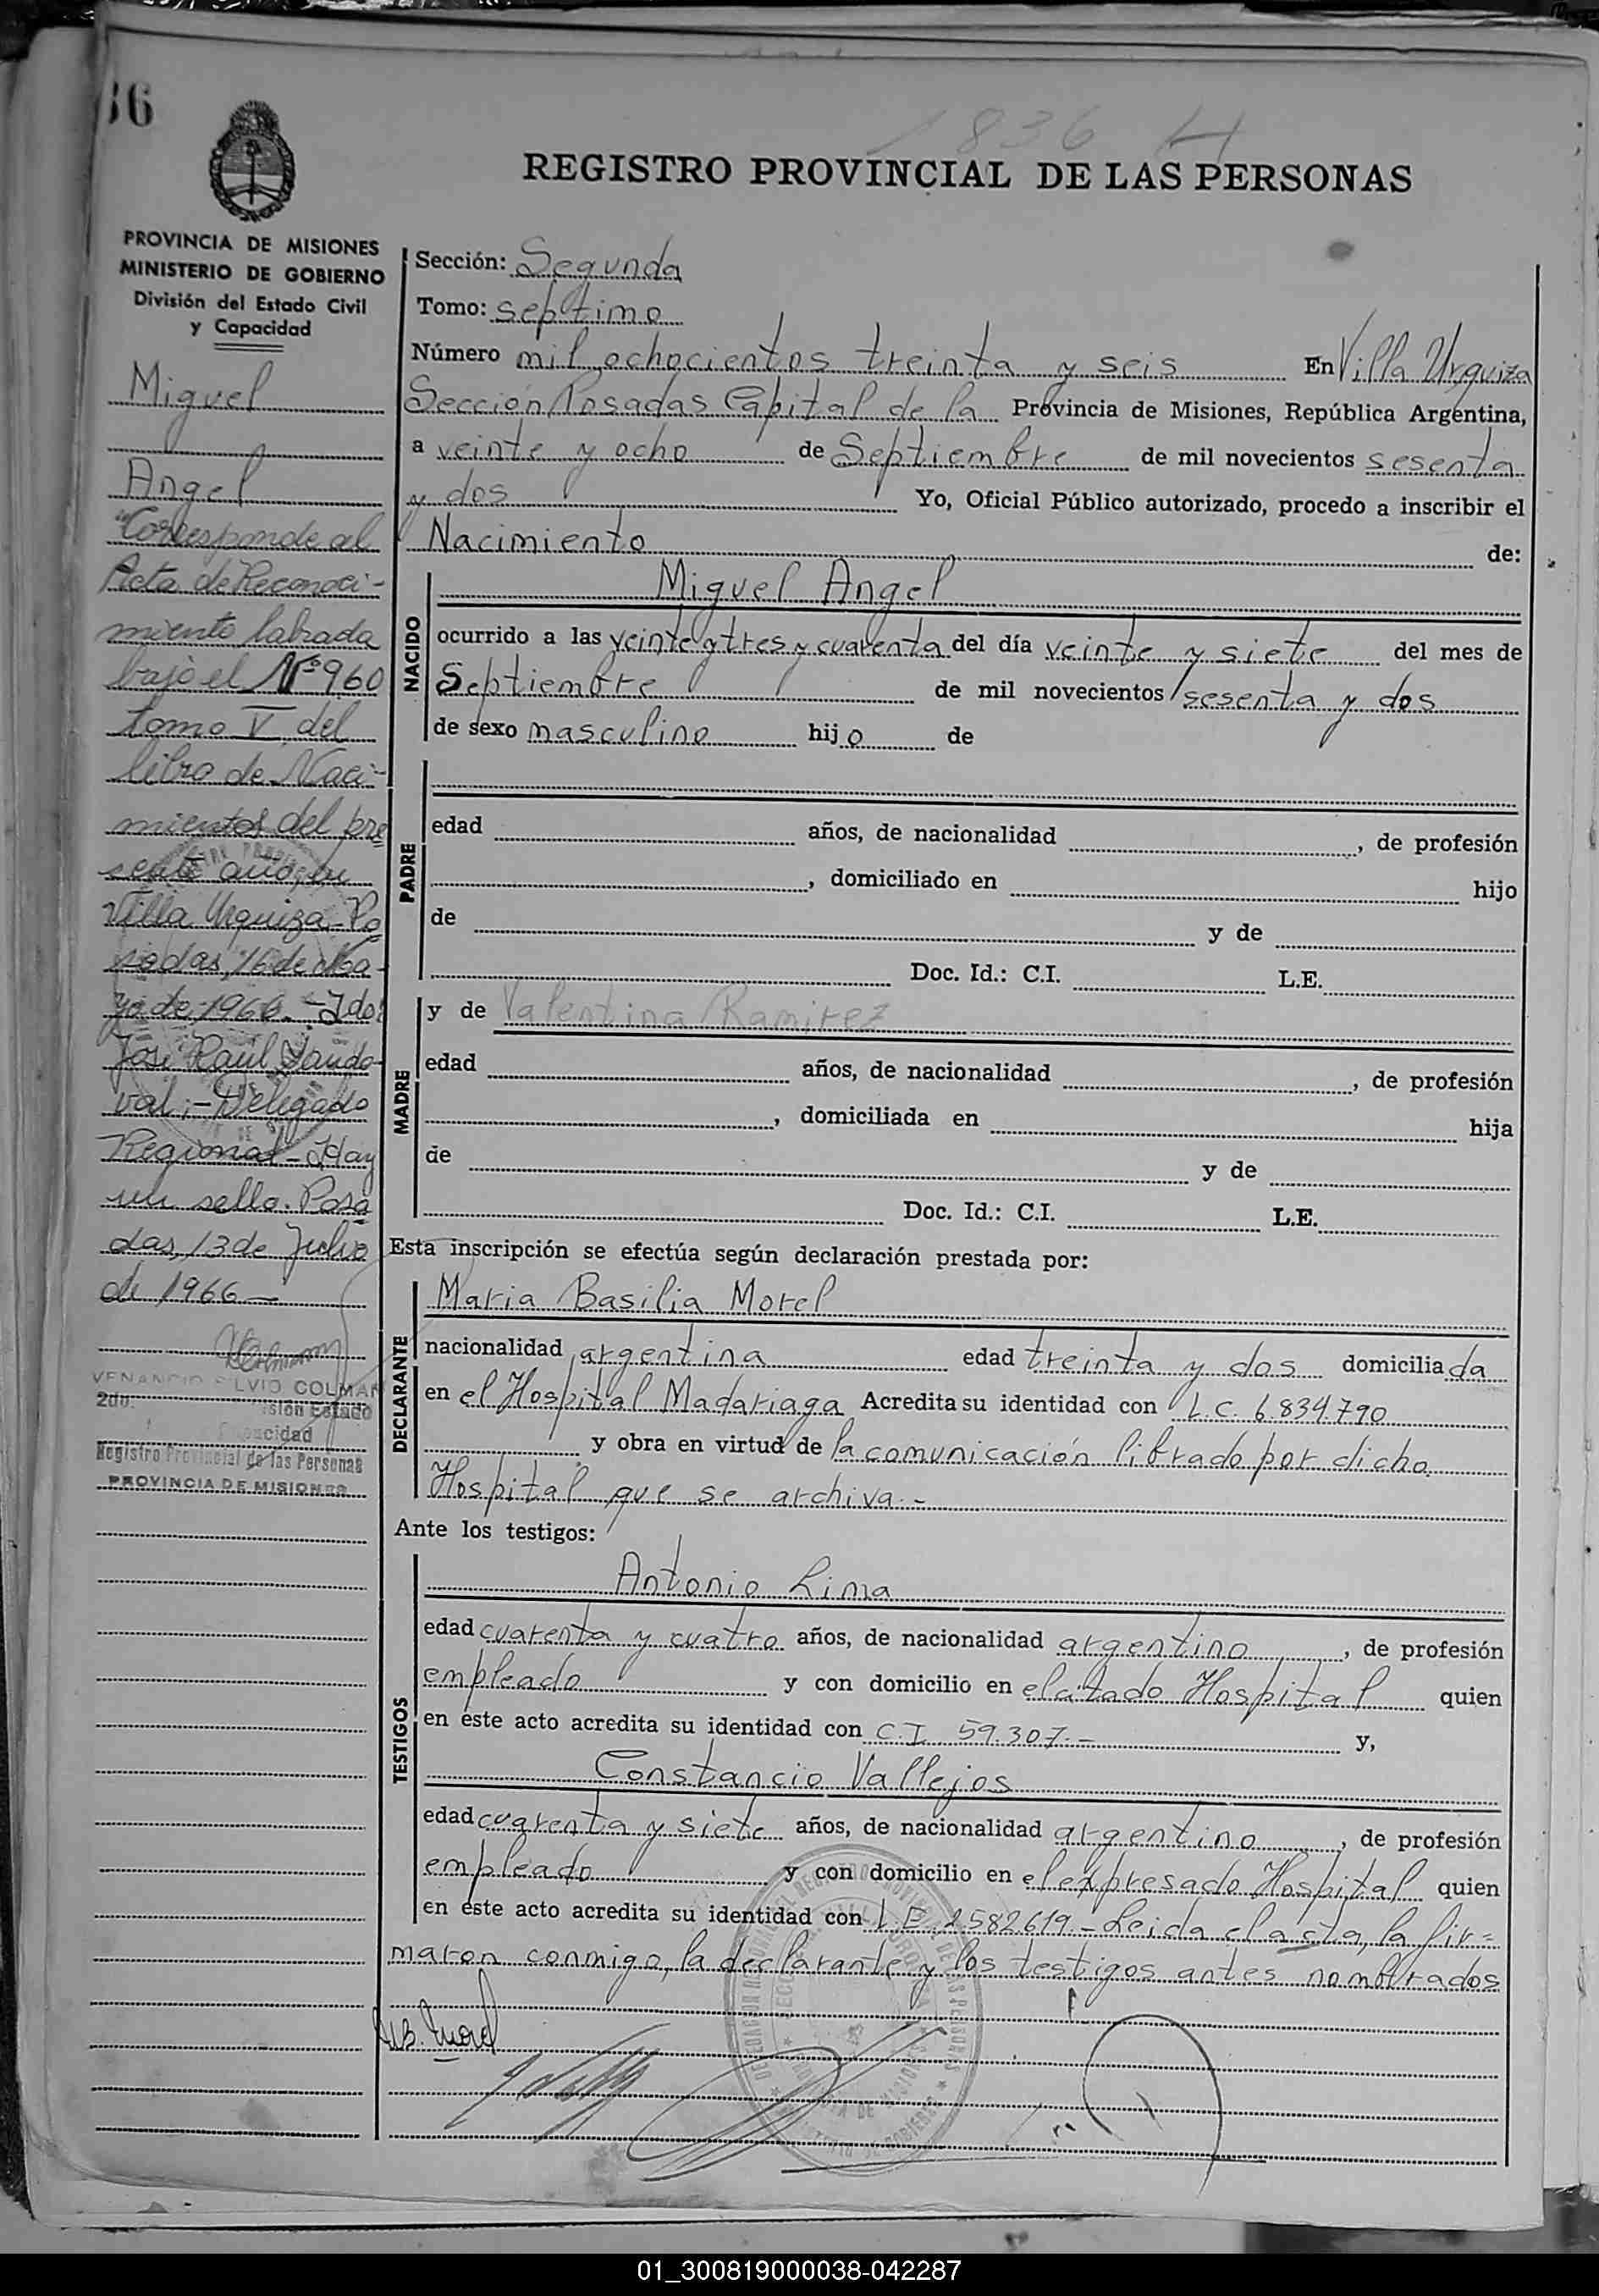 36
1836 H
REGISTRO PROVINCIAL DE LAS PERSONAS
PROVINCIA DE MISIONES
MINISTERIO DE GOBIERNO
División del Estado Civil
y Capacidad
Miguel
Angel
"Corresponde al
Acta de Reconoci-
miento labrada
bajo el Nº 960
tomo V del
libro de Naci-
mientos del pre
sente año, en
Villa Urquiza-Po
sadas, 16 de Ma-
yo de 1966.-Fdo:
José Raúl Sando-
val;-Delegado
Regional-Hay
un sello. Posa
das, 13 de Julio
de 1966-
VENANCIO SILVIO COLMAN
2do.
Registro Provincial de las Personas
PROVINCIA DE MISIONES
Sección: Segunda
Tomo: septimo
Número mil ochocientos treinta y seis En Villa Urquiza
Sección Posadas Capital de la Provincia de Misiones, República Argentina,
a veinte y ocho de Septiembre de mil novecientos sesenta
y dos Yo, Oficial Público autorizado, procedo a inscribir el
Nacimiento de:
NACIDO
Miguel Angel
ocurrido a las veinte y tres y cuarenta del día veinte y siete del mes de
Septiembre de mil novecientos sesenta y dos
de sexo masculino hijo de
PADRE
edad años, de nacionalidad , de profesión
, domiciliado en hijo
de y de
Doc. Id.: C.I. L.E.
MADRE
y de Valentina Ramirez
edad años, de nacionalidad , de profesión
, domiciliada en hija
de y de
Doc. Id.: C.I. L.E.
Esta inscripción se efectúa según declaración prestada por:
DECLARANTE
Maria Basilia Morel
nacionalidad argentina edad treinta y dos domiciliada
en el Hospital Madariaga Acredita su identidad con L.C. 6.834.790
y obra en virtud de la comunicación librado por dicho
Hospital que se archiva.-
Ante los testigos:
TESTIGOS
Antonio Lima
edad cuarenta y cuatro años, de nacionalidad argentino, de profesión
empleado y con domicilio en el citado Hospital quien
en este acto acredita su identidad con C.I. 59.307.- y,
Constancio Vallejos
edad cuarenta y siete años, de nacionalidad argentino, de profesión
empleado y con domicilio en el expresado Hospital quien
en este acto acredita su identidad con L.E. 2582619.- Leida el acta, la fir=
maron conmigo, la declarante y los testigos antes nombrados
M.B. Morel
01_300819000038-042287